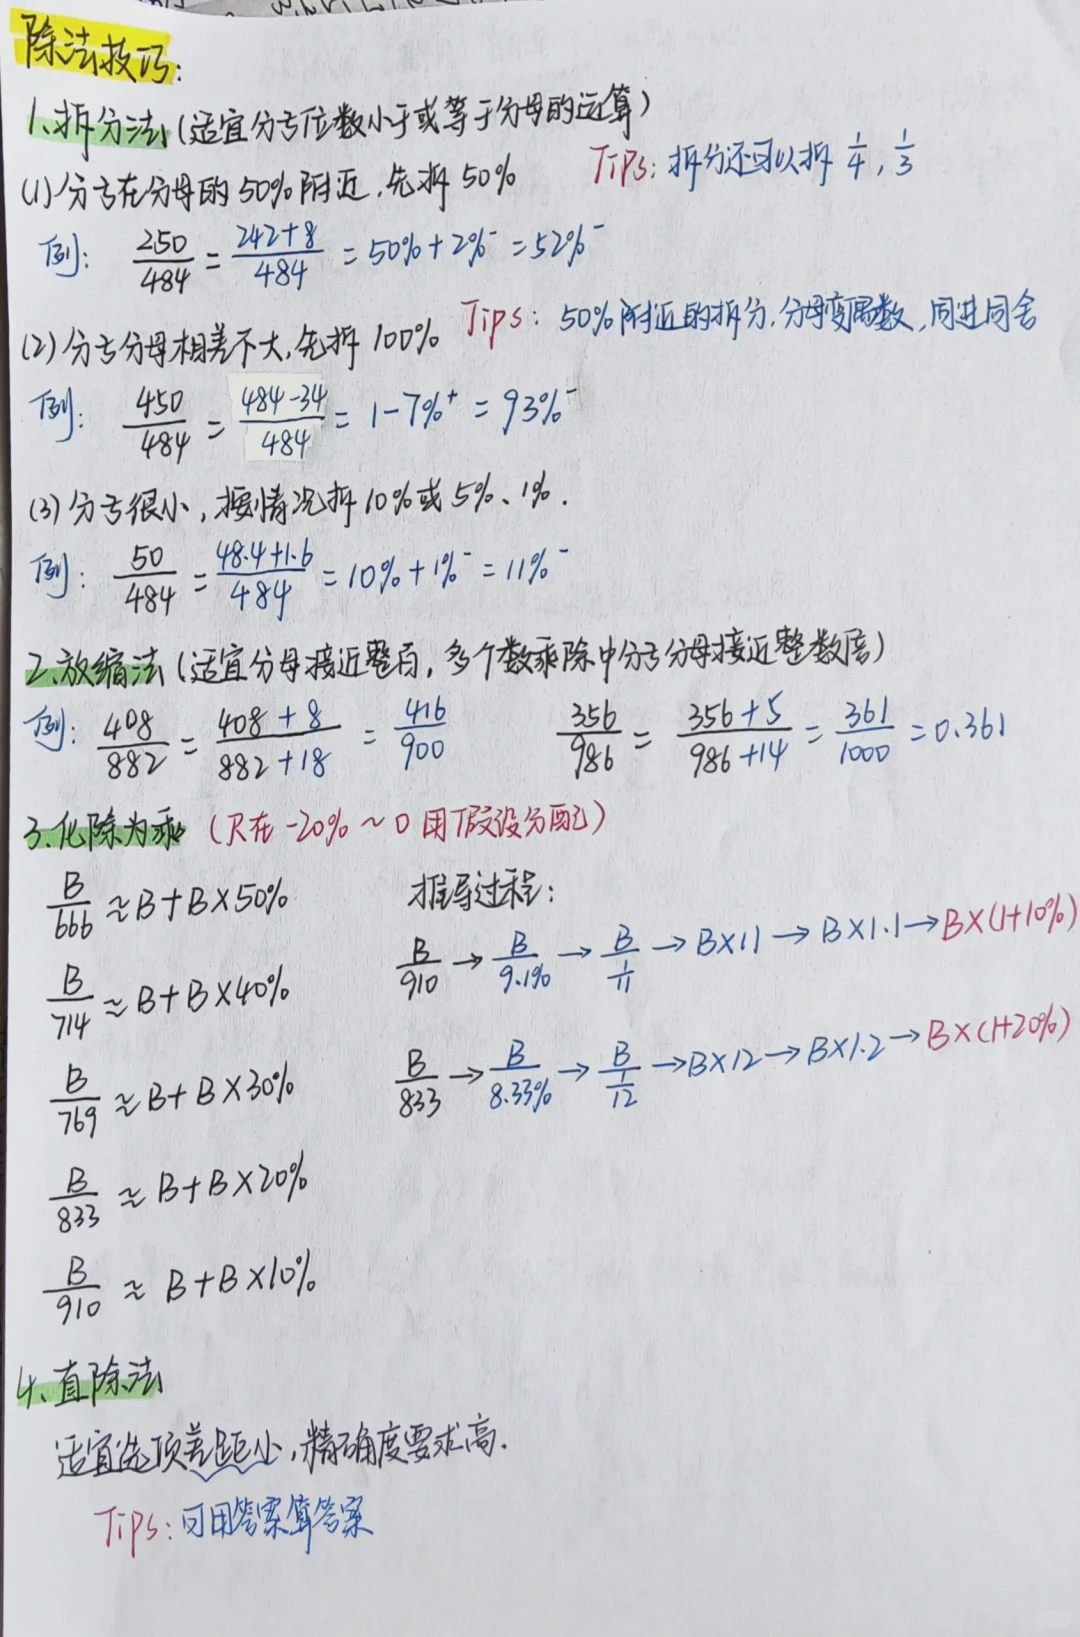 除法技巧:
1、拆分法(适宜分子位数小于或等于分母的运算)
Tips: 拆分还可以拆 1/4, 1/3
(1)分子在分母的50%附近,先拆50%
例: 250/484 = (242+8)/484 = 50%+2%⁻ = 52%⁻
Tips: 50%附近的拆分,分母变偶数,同进同舍
(2)分子分母相差不大,先拆100%
例: 450/484 = (484-34)/484 = 1-7%⁺ = 93%⁻
(3)分子很小,按情况拆10%或5%、1%.
例: 50/484 = (48.4+1.6)/484 = 10%+1%⁻ = 11%⁻
2、放缩法(适宜分母接近整百,多个数乘除中分子分母接近整数倍)
例: 408/882 = (408+8)/(882+18) = 416/900
356/986 = (356+5)/(986+14) = 361/1000 = 0.361
3、化除为乘 (R在-20%~0用假设分配)
B/666 ≈ B+B×50%
B/714 ≈ B+B×40%
B/769 ≈ B+B×30%
B/833 ≈ B+B×20%
B/910 ≈ B+B×10%
推导过程:
B/910 → B/9.1% → B/(1/11) → B×11 → B×1.1 → B×(1+10%)
B/833 → B/8.33% → B/(1/12) → B×12 → B×1.2 → B×(1+20%)
4、直除法
适宜选项差距小,精确度要求高.
Tips: 可用答案算答案